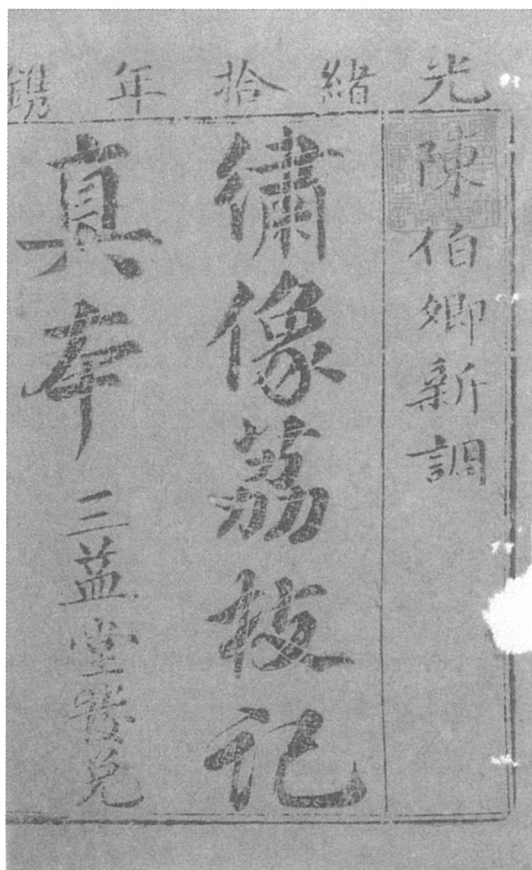 光緒拾年鐫
陳伯卿新調
繡像荔枝記
真本 三益堂發兌